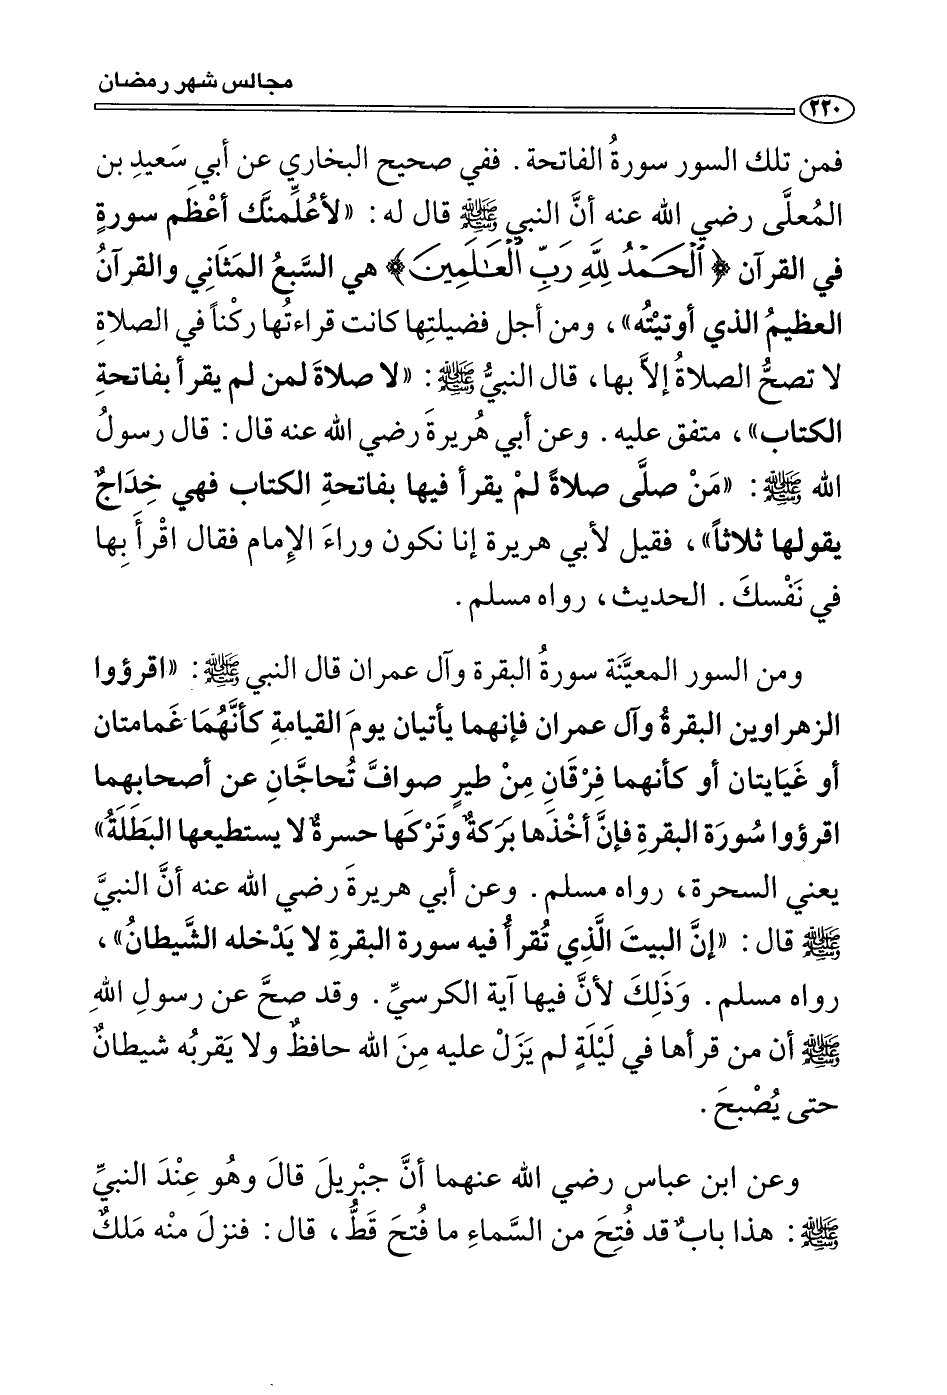 مجالس شهر رمضان
٢٢٠
فمن تلك السور سورةُ الفاتحة. ففي صحيح البخاري عن أبي سَعيدِ بن
المُعلَّى رضي الله عنه أنَّ النبي ﷺ قال له: «لأعُلِّمنَّك أعْظَم سورةٍ
في القرآن ﴿ٱلْحَمْدُ لِلَّهِ رَبِّ ٱلْعَٰلَمِينَ﴾ هي السَّبعُ المَثَاني والقرآنُ
العظيمُ الذي أوتيْتُه»، ومن أجل فضيلتِها كانت قراءتُها ركْناً في الصلاةِ
لا تصحُّ الصلاةُ إلاَّ بها، قال النبيُّ ﷺ: «لا صلاةَ لمن لم يقرأ بفاتحةِ
الكتاب»، متفق عليه. وعن أبي هُريرةَ رضي الله عنه قال: قال رسولُ
الله ﷺ: «مَنْ صلَّى صلاةً لمْ يقرأ فيها بفاتحةِ الكتاب فهي خِدَاجٌ
يقولها ثلاثاً»، فقيل لأبي هريرة إنا نكون وراءَ الإمام فقال اقْرأَ بِها
في نَفْسكَ. الحديث، رواه مسلم.
ومن السور المعيَّنَة سورةُ البقرة وآل عمران قال النبي ﷺ: «اقرؤوا
الزهراوين البقرةُ وآل عمران فإنهما يأتيان يومَ القيامةِ كأنَّهُمَا غَمامتان
أو غَيَايتان أو كأنهما فِرْقَانِ مِنْ طيرٍ صوافَّ تُحاجَّانِ عن أصحابِهما
اقرؤوا سُورَة البقرةِ فإنَّ أخْذَها بَركةٌ وتَرْكَها حسرةٌ لا يستطيعها البَطَلَةُ»
يعني السحرة، رواه مسلم. وعن أبي هريرةَ رضي الله عنه أنَّ النبيَّ
ﷺ قال: «إنَّ البيتَ الَّذِي تُقرأُ فيه سورة البقرةِ لا يَدْخله الشَّيطانُ»،
رواه مسلم. وَذَلِكَ لأنَّ فيها آية الكرسيِّ. وقد صحَّ عن رسولِ اللهِ
ﷺ أن من قرأها في لَيْلَةٍ لم يَزَلْ عليه مِنَ الله حافظٌ ولا يَقربُه شيطانٌ
حتى يُصْبحَ.
وعن ابن عباس رضي الله عنهما أنَّ جبْريلَ قالَ وهُو عِنْدَ النبيِّ
ﷺ: هذا بابٌ قد فُتِحَ من السَّماءِ ما فُتحَ قَطُّ، قال: فنزلَ منْه مَلكٌ